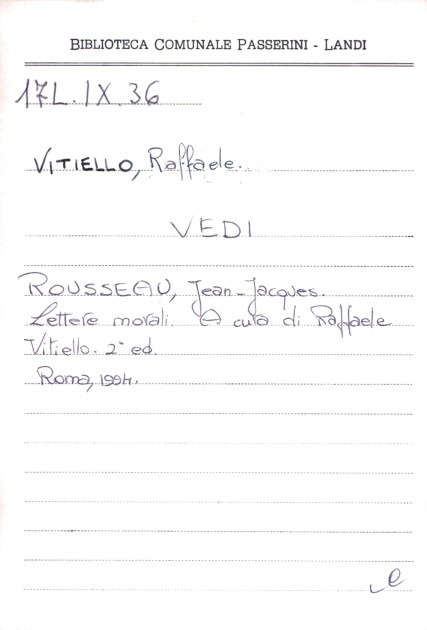 BIBLIOTECA COMUNALE PASSERINI - LANDI
17L.IX.36
VITIELLO, Raffaele.
VEDI
ROUSSEAU, Jean-Jacques.
Lettere morali. A cura di Raffaele
Vitiello. 2ª ed.
Roma, 1994.
e